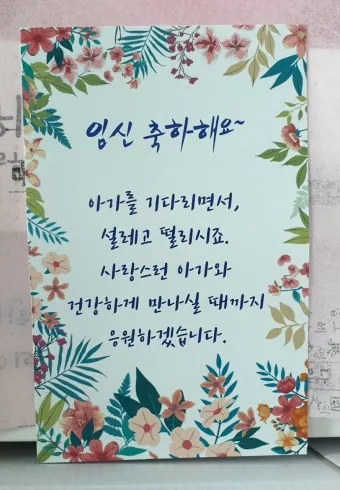 임신 축하해요~
아가를 기다리면서,
설레고 떨리시죠.
사랑스런 아가와
건강하게 만나실 때까지
응원하겠습니다.